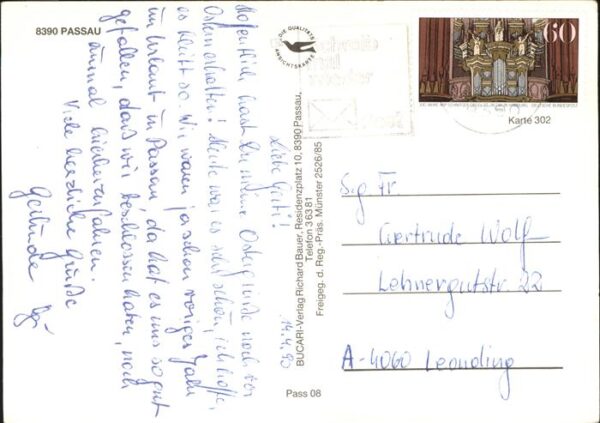 8390 PASSAU
DIE QUALITÄTS
ANSICHTSKARTE
schreib
mal
wieder
Post
60
Karte 302
14.4.90
Liebe Gerti!
Hoffentlich hast Du meine Ostergrüße noch vor
Ostern erhalten! Heute war es sehr schön, ich hoffe,
es bleibt so. Wir waren ja schon voriges Jahr
im Urlaub in Passau, da hat es uns so gut
gefallen, daß wir beschlossen haben, noch
einmal hierherzufahren.
Viele herzliche Grüße
Gerlinde
BUCARI-Verlag Richard Bauer, Residenzplatz 10, 8390 Passau,
Telefon 3 63 81
Freigeg. d. Reg.-Präs. Münster 2526/85
Pass 08
S.g. Fr
Gertrude Wolf
Lehnergutstr. 22
A-4060 Leonding